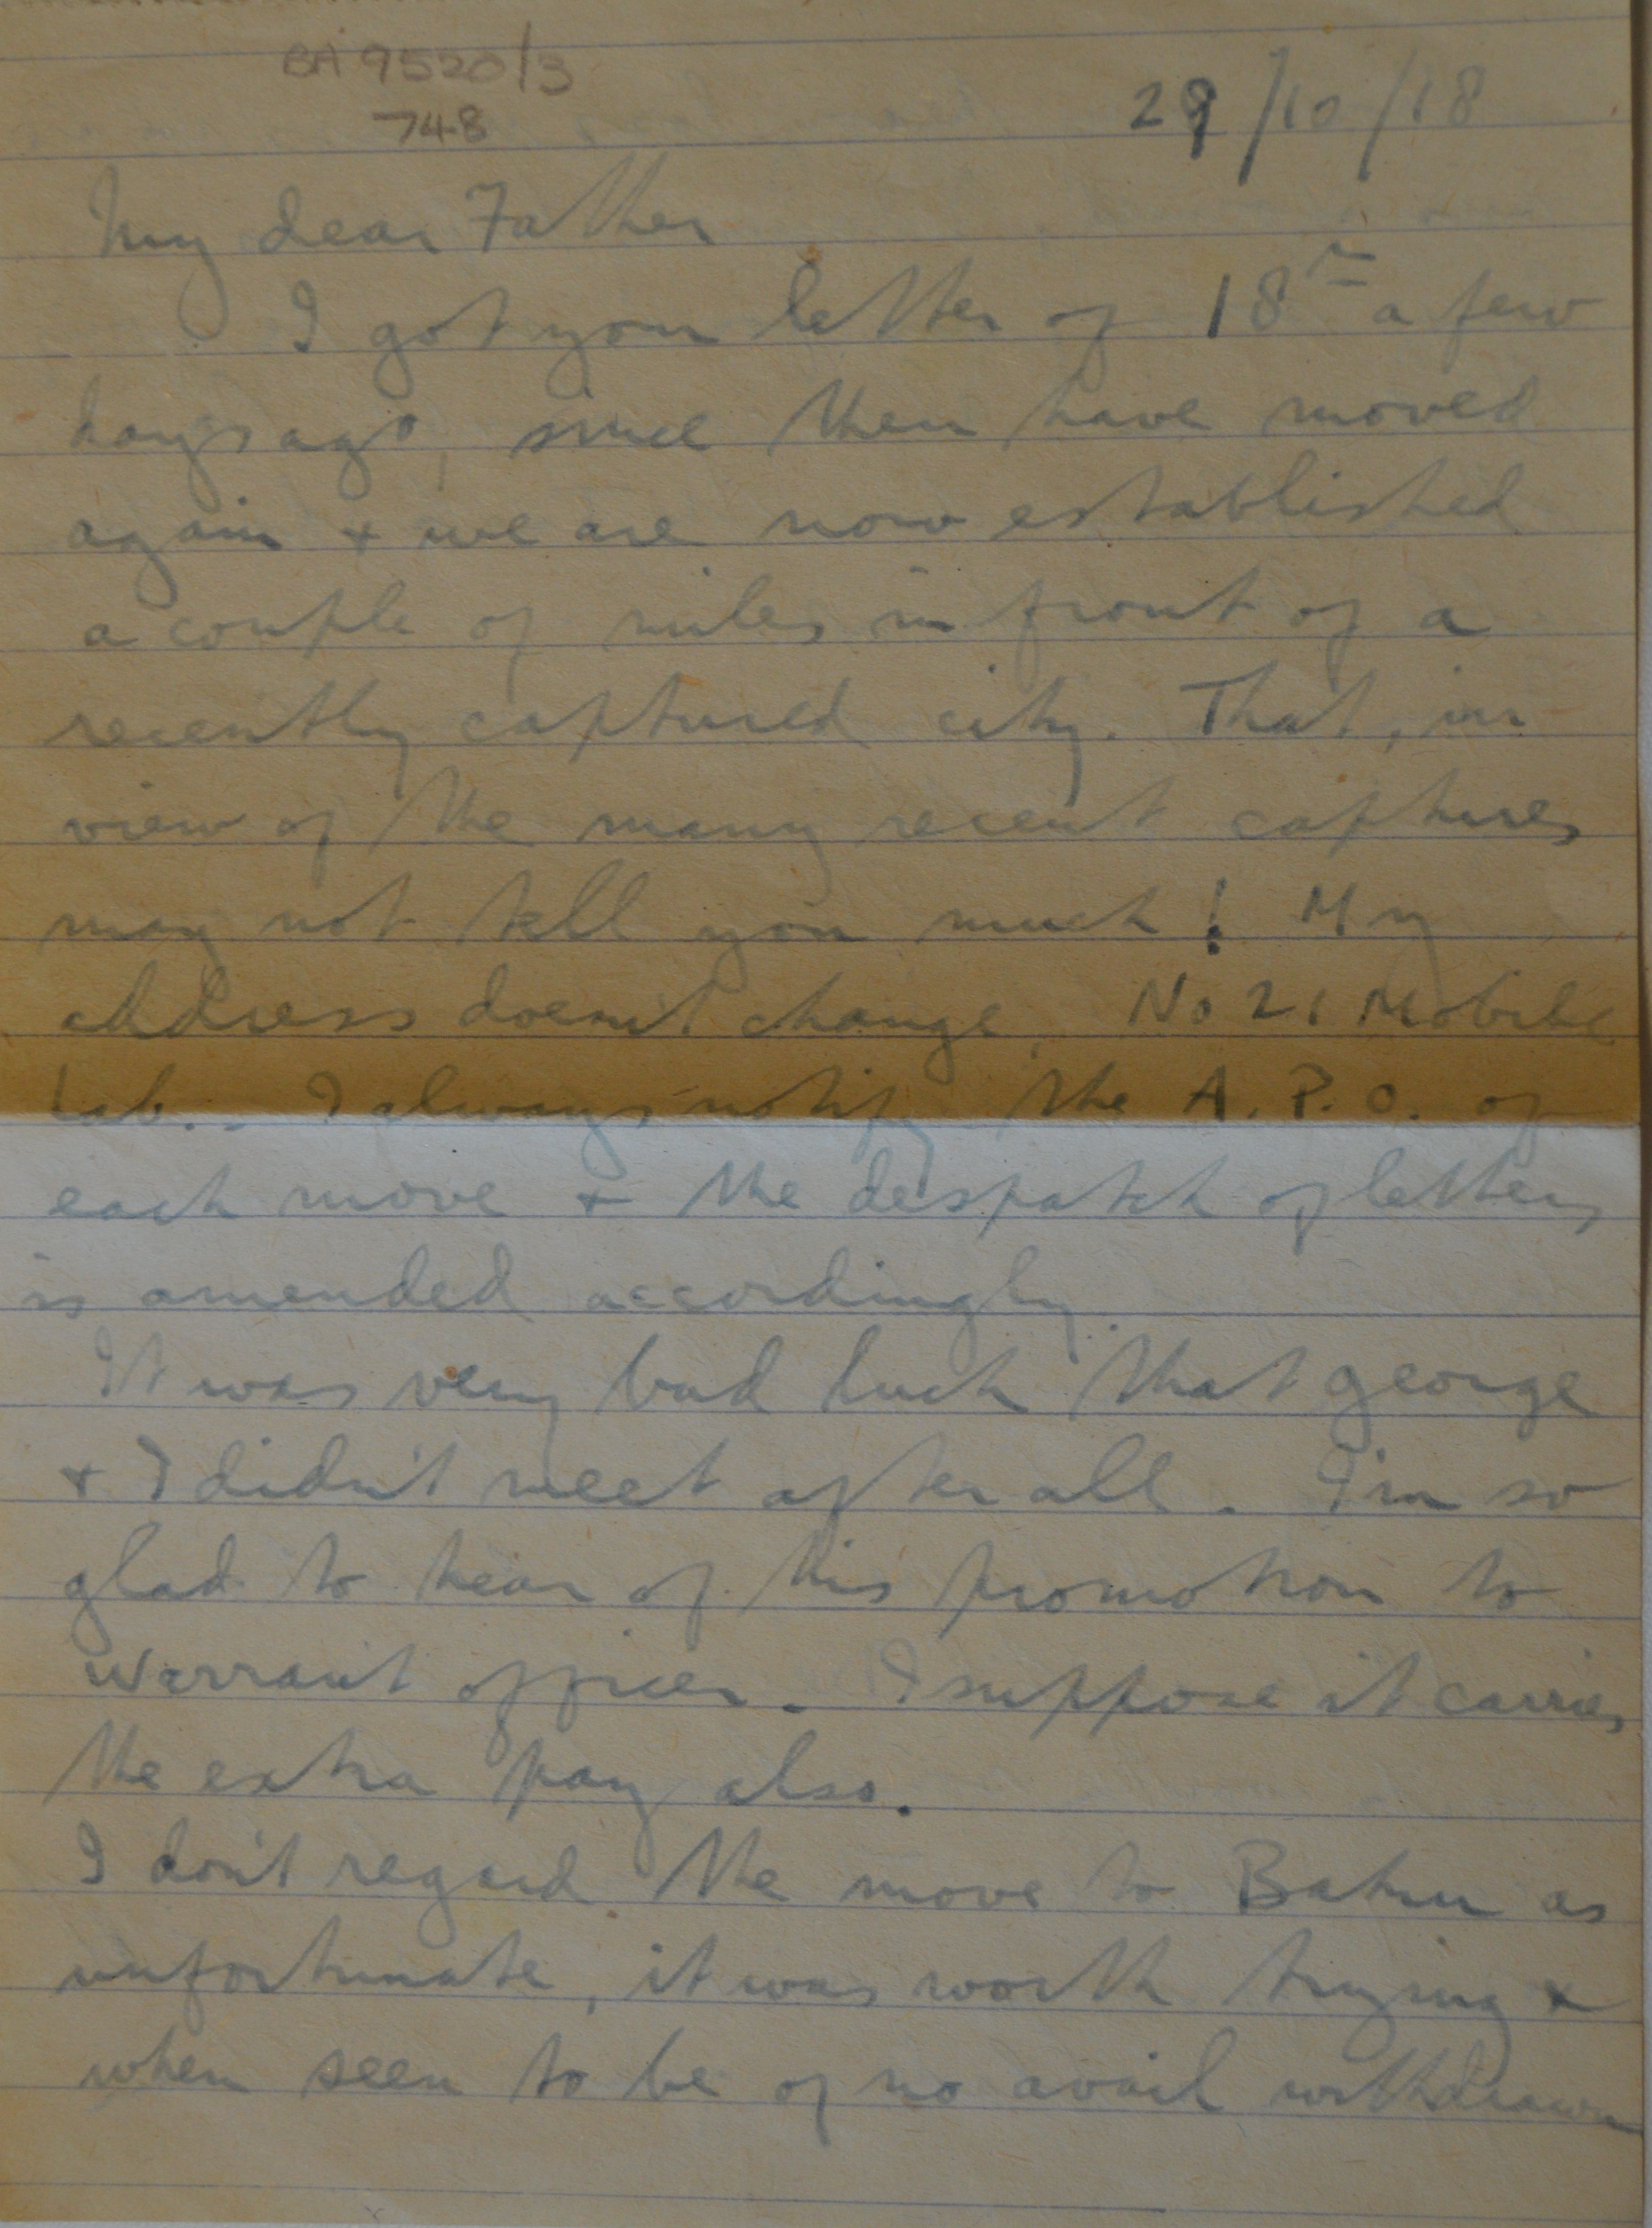 BA 9520/3
748
29/10/18
My dear Father
I got your letter of 18th a few
days ago, since then have moved
again + we are now established
a couple of miles in front of a
recently captured city. That, in
view of the many recent captures
may not tell you much! My
address doesn't change, No 21 Mobile
Lab.. I always notify the A.P.O. of
each move + the despatch of letters
is amended accordingly.
It was very bad luck that George
+ I didn't meet after all. I'm so
glad to hear of his promotion to
warrant officer. I suppose it carries
the extra pay also.
I don't regard the move to Baku as
unfortunate, it was worth trying +
when seen to be of no avail withdrawn